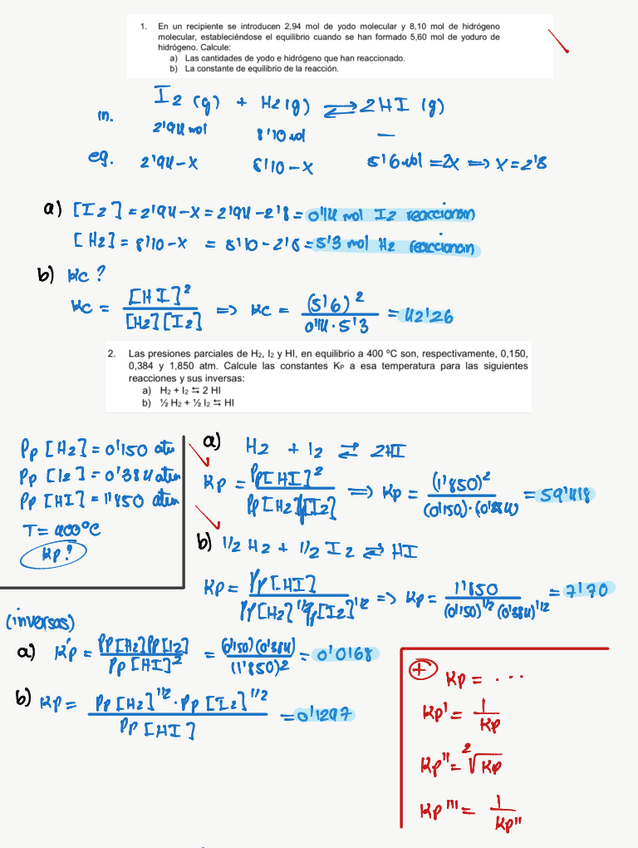 1. En un recipiente se introducen 2,94 mol de yodo molecular y 8,10 mol de hidrógeno
molecular, estableciéndose el equilibrio cuando se han formado 5,60 mol de yoduro de
hidrógeno. Calcule:
a) Las cantidades de yodo e hidrógeno que han reaccionado.
b) La constante de equilibrio de la reacción.
I2 (g) + H2 (g) ⇄ 2HI (g)
in. 2'94 mol 8'10 mol —
eq. 2'94-x 8'10-x 5'6 mol = 2x ⇒ x = 2'8
a) [I2] = 2'94-x = 2'94-2'8 = 0'14 mol I2 reaccionan
[H2] = 8'10-x = 8'10-2'8 = 5'3 mol H2 reaccionan
b) Kc?
Kc = [HI]² / [H2][I2] ⇒ Kc = (5'6)² / 0'14·5'3 = 42'26
2. Las presiones parciales de H₂, I₂ y HI, en equilibrio a 400 ºC son, respectivamente, 0,150,
0,384 y 1,850 atm. Calcule las constantes KP a esa temperatura para las siguientes
reacciones y sus inversas:
a) H₂ + I₂ ⇆ 2 HI
b) ½ H₂ + ½ I₂ ⇆ HI
Pp [H2] = 0'150 atm
Pp [I2] = 0'384 atm
Pp [HI] = 1'850 atm
T = 400ºC
Kp?
a) H2 + I2 ⇄ 2HI
Kp = Pp[HI]² / Pp[H2]Pp[I2] ⇒ Kp = (1'850)² / (0'150)·(0'384) = 59'418
b) 1/2 H2 + 1/2 I2 ⇄ HI
Kp = Pp[HI] / Pp[H2]^1/2 Pp[I2]^1/2 ⇒ Kp = 1'850 / (0'150)^1/2 (0'384)^1/2 = 7'70
(inversas)
a) K'p = Pp[H2]Pp[I2] / Pp[HI]² = (0'150)(0'384) / (1'850)² = 0'0168
b) Kp = Pp[H2]^1/2 · Pp[I2]^1/2 / Pp[HI] = 0'1297
+ Kp = ...
Kp' = 1 / Kp
Kp'' = ²√Kp
Kp''' = 1 / Kp''